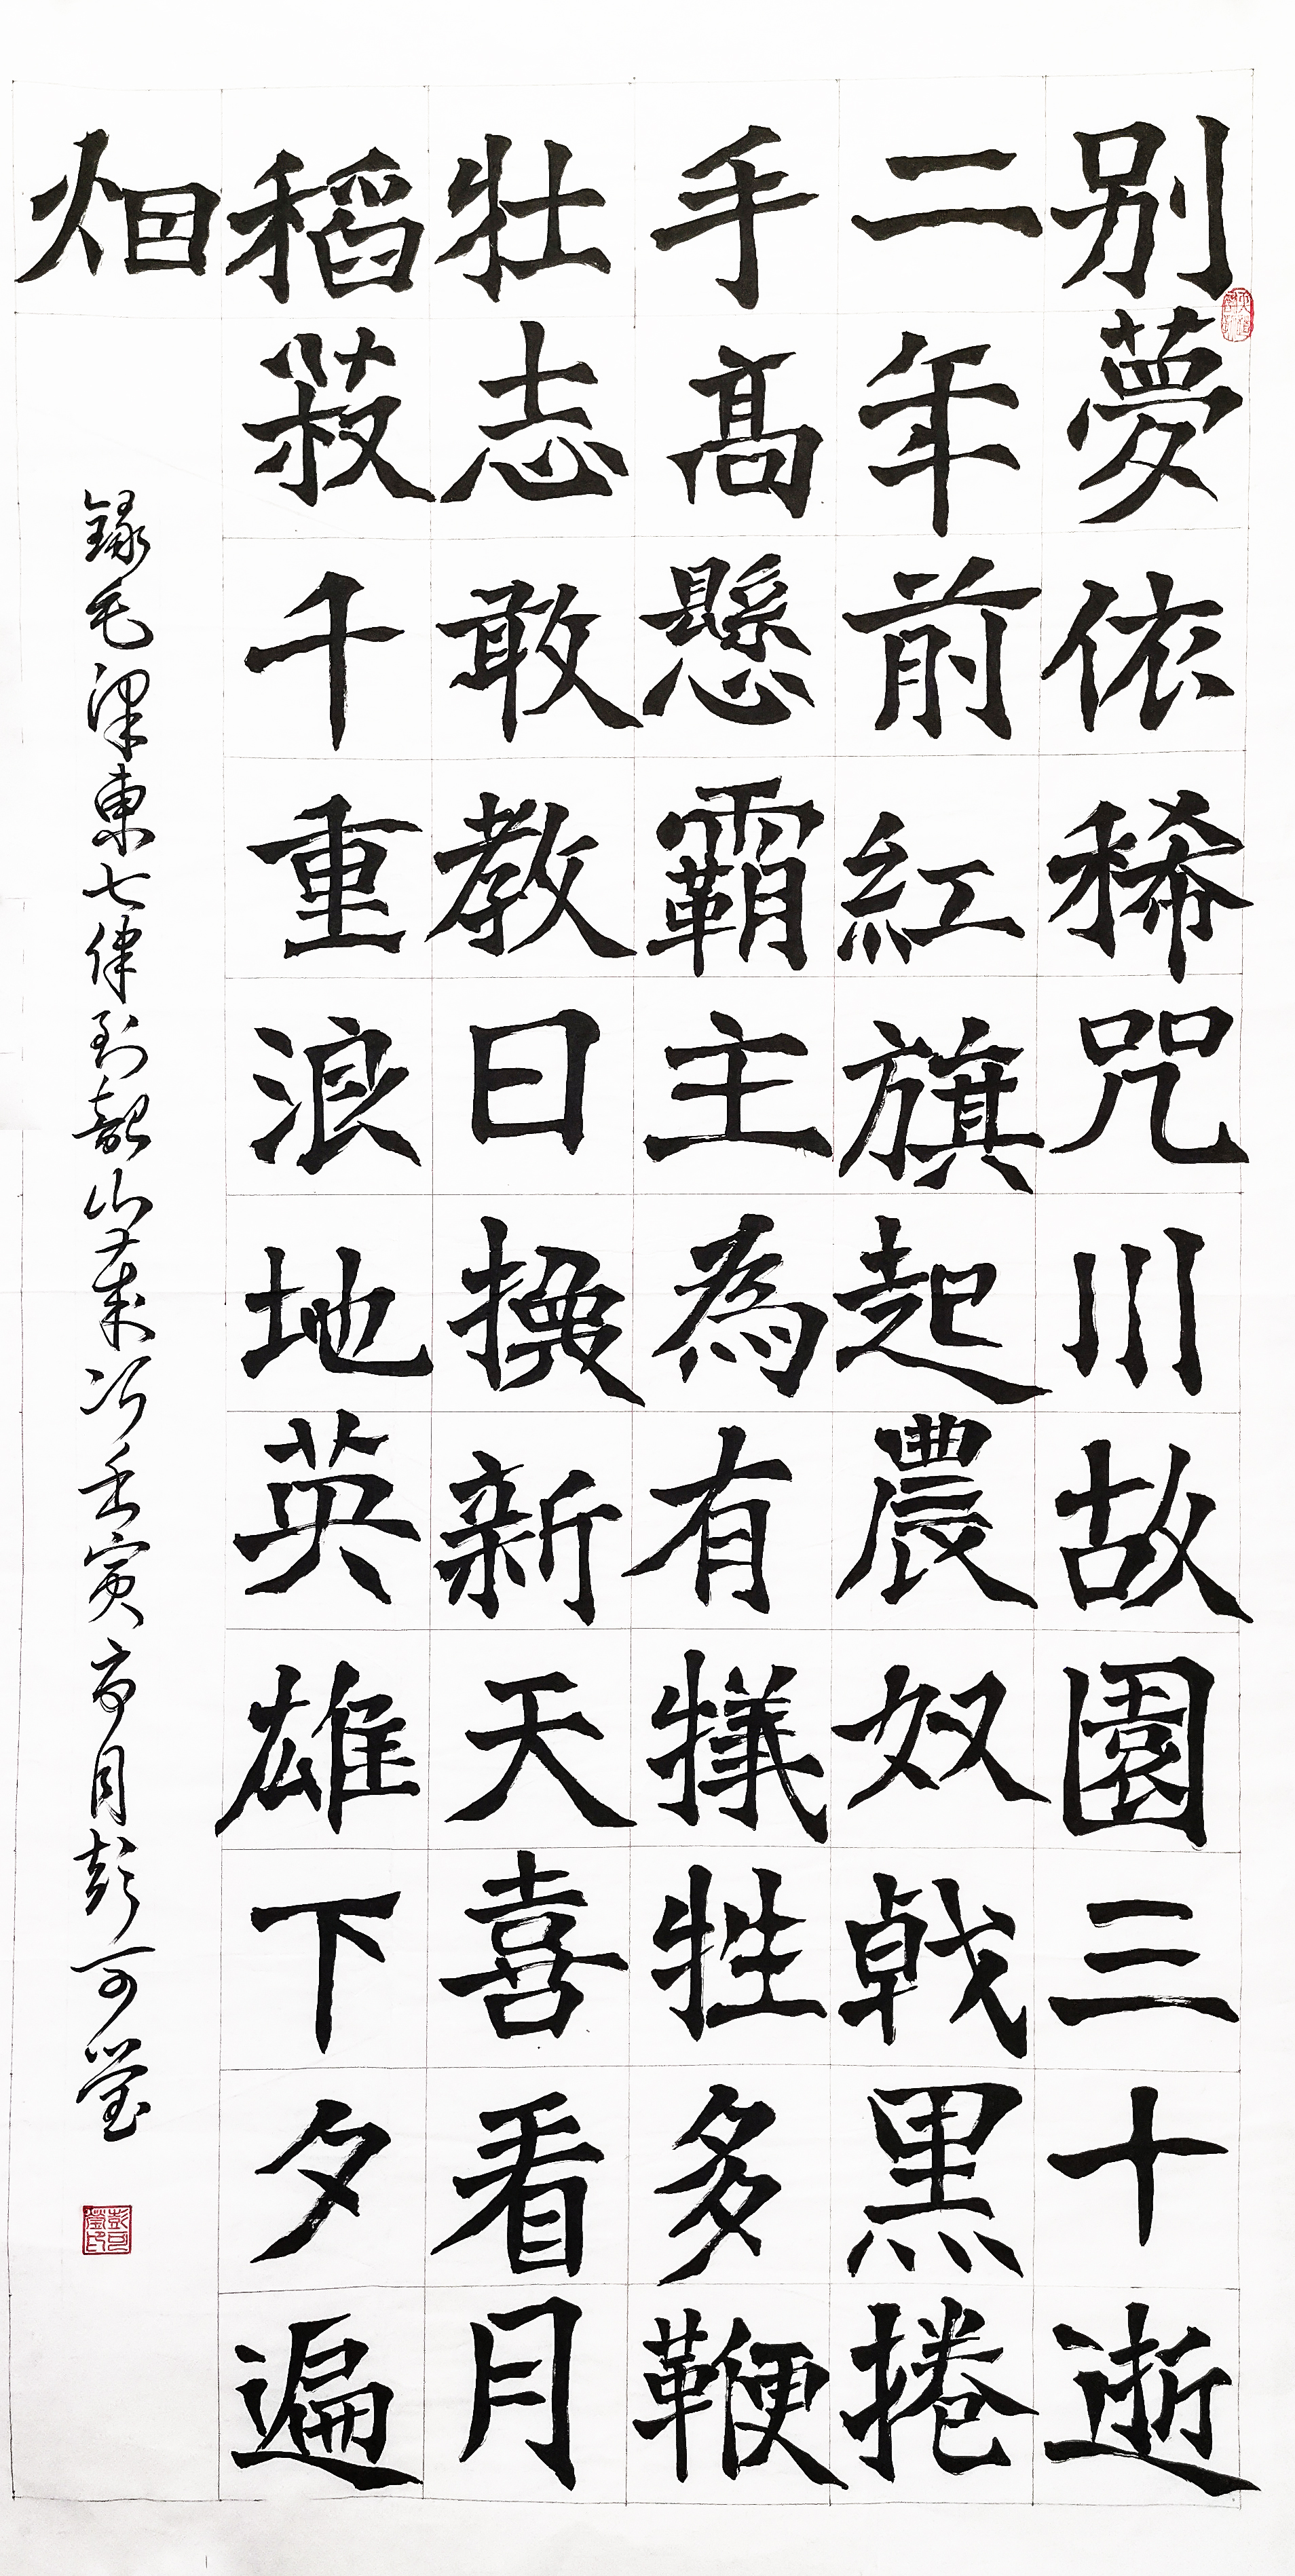 别夢依稀咒川故園三十逝
二年前紅旗起農奴戟黑捲
手高懸霸主為有犧牲多鞭
牡志敢教日換新天喜看月
稻菽千重浪地英雄下夕遍
烟
錄毛澤東七律到韶山歲次壬寅月彭可瑩
彭可瑩印